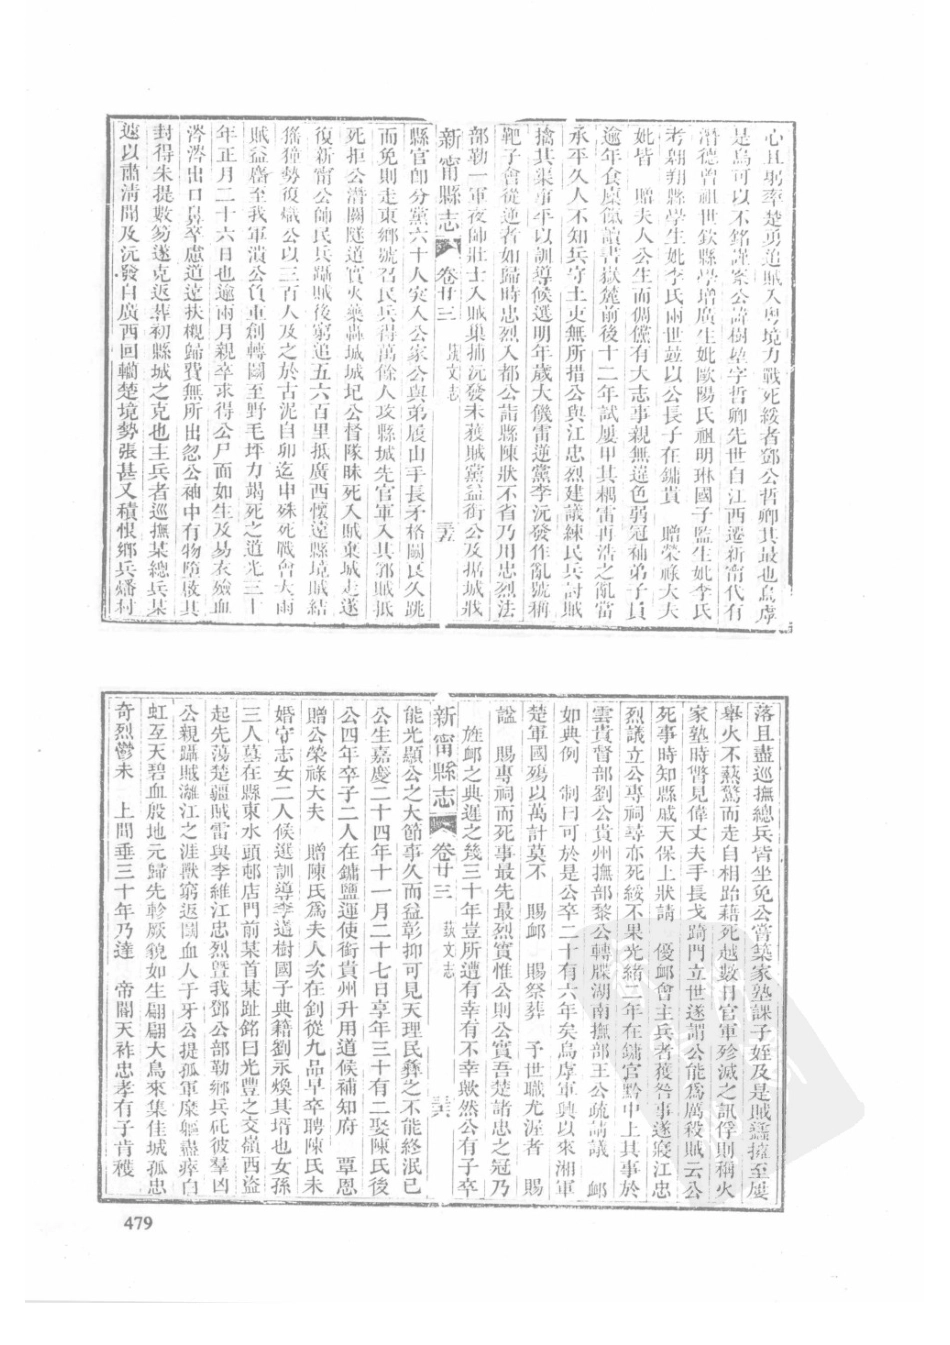 心且躬率楚勇追賊入粵境力戰死綏者鄧公哲卿其最也烏虖
是烏可以不銘謹案公諱樹堃字哲卿先世自江西遷新甯代有
潛德曾祖世欽縣學增廣生妣歐陽氏祖明琳國子監生妣李氏
考翱翔縣學生妣李氏兩世竝以公長子在鏞貴 贈榮祿大夫
妣皆 贈夫人公生而倜儻有大志事親無違色弱冠補弟子員
逾年食廩餼讀書嶽麓前後十二年試屢甲其耦雷再浩之亂當
承平久人不知兵守土吏無所措公與江忠烈建議練民兵討賊
擒其渠事平以訓導候選明年歲大饑雷逆黨李沅發作亂號稱
靶子會從逆者如歸時忠烈入都公詣縣陳狀不省乃用忠烈法
部勒一軍夜帥壯士入賊巢捕沅發未獲賊黨益銜公及據城戕
新甯縣志 卷廿三 藝文志 三五
縣官卽分黨六十人突入公家公與弟履山手長矛格鬭良久跳
而免則走東鄉號召民兵得萬餘人攻縣城先官軍入其郛賊抵
死拒公潛闕隧道實火藥轟城城圮公督隊昧死入賊棄城走遂
復新甯公帥民兵躡賊後窮追五六百里抵廣西懷遠縣境賊結
猺獞勢復熾公以三百人及之於古泥自卯迄申殊死戰會大雨
賊益麕至我軍潰公負重創轉鬭至野毛坪力竭死之道光三十
年正月二十六日也逾兩月親卒求得公尸面如生及易衣殮血
涔涔出口鼻卒慮道遠扶櫬歸費無所出忽公袖中有物墮檢其
封得朱提數笏遂克返葬初縣城之克也主兵者巡撫某總兵某
遽以肅清聞及沅發自廣西回竄楚境勢張甚又積恨鄉兵燔村
落且盡巡撫總兵皆坐免公嘗築家塾課子姪及是賊蠭擁至屢
舉火不爇驚而走自相跆藉死越數日官軍殄滅之訊俘則稱火
家塾時瞥見偉丈夫手長戈踦門立世遂謂公能爲厲殺賊云公
死事時知縣戚天保上狀請 優卹會主兵者獲咎事遂寢江忠
烈議立公專祠尋亦死綏不果光緒二年在鏞官黔中上其事於
雲貴督部劉公貴州撫部黎公轉牒湖南撫部王公疏請議 卹
如典例 制曰可於是公卒二十有六年矣烏虖軍興以來湘軍
楚軍國殤以萬計莫不 賜卹 賜祭葬 予世職尤渥者 賜
諡 賜專祠而死事最先最烈實惟公則公實吾楚諸忠之冠乃
旌卹之典遲之幾三十年豈所遭有幸有不幸歟然公有子卒
新甯縣志 卷廿三 藝文志 三六
能光顯公之大節事久而益彰抑可見天理民彝之不能終泯已
公生嘉慶二十四年十一月二十七日享年三十有二娶陳氏後
公四年卒子二人在鏞鹽運使銜貴州升用道候補知府 覃恩
贈公榮祿大夫 贈陳氏爲夫人次在釗從九品早卒聘陳氏未
婚守志女二人候選訓導李道樹國子典籍劉永煥其壻也女孫
三人墓在縣東水頭邨店門前某首某趾銘曰光豐之交嶺西盜
起先蕩楚疆賊雷與李維江忠烈曁我鄧公部勒鄉兵砥彼羣凶
公親躡賊灕江之涯獸窮返鬭血人于牙公提孤軍糜軀盡瘁白
虹亙天碧血殷地元歸先軫厥貌如生翩翩大鳥來集佳城孤忠
奇烈鬱未 上聞垂三十年乃達 帝閽天祚忠孝有子肯穫
479